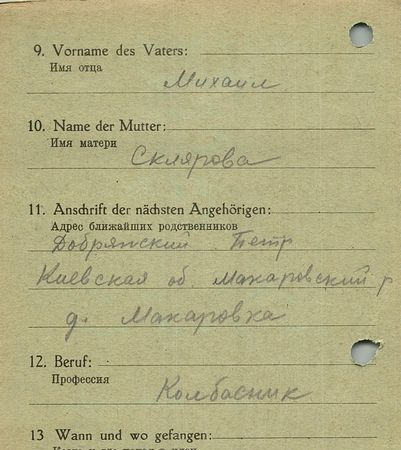 9. Vorname des Vaters:
Имя отца
Михаил
10. Name der Mutter:
Имя матери
Склярова
11. Anschrift der nächsten Angehörigen:
Адрес ближайших родственников
Добрянский Петр
Киевская об. Макаровский р
д. Макаровка
12. Beruf:
Профессия
Колбасник
13 Wann und wo gefangen: